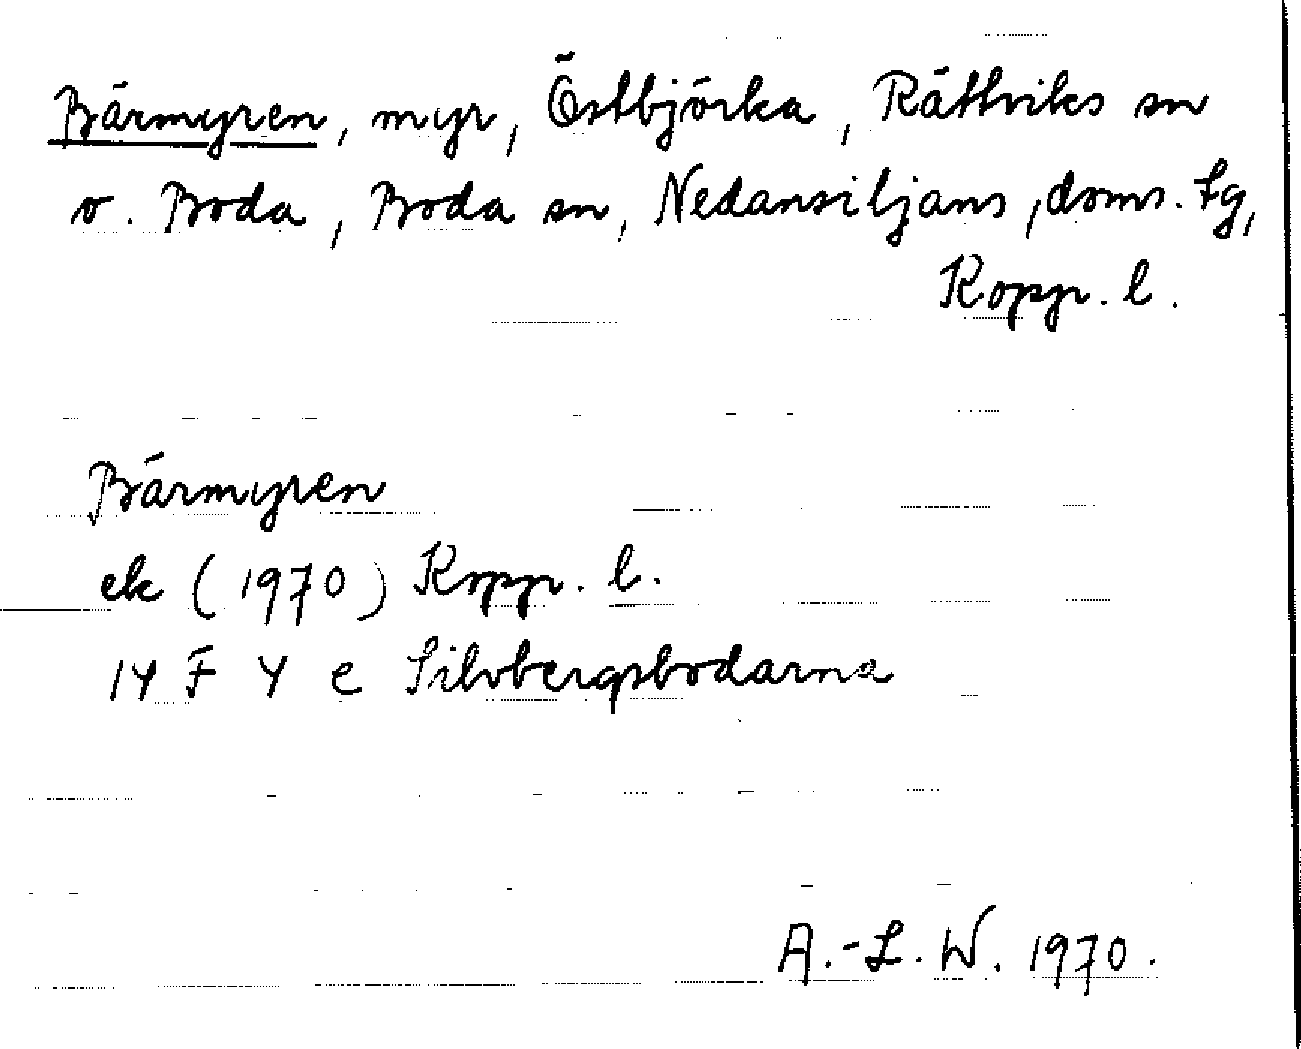 Bärmyren, myr, Östbjörka, Rättviks sn
o. Boda, Boda sn, Nedansiljans, doms. tg,
Kopp. l.
Bärmyren
ek (1970) Kopp. l.
14 F 4 e Silvbergsbodarna
A.-L. W. 1970.